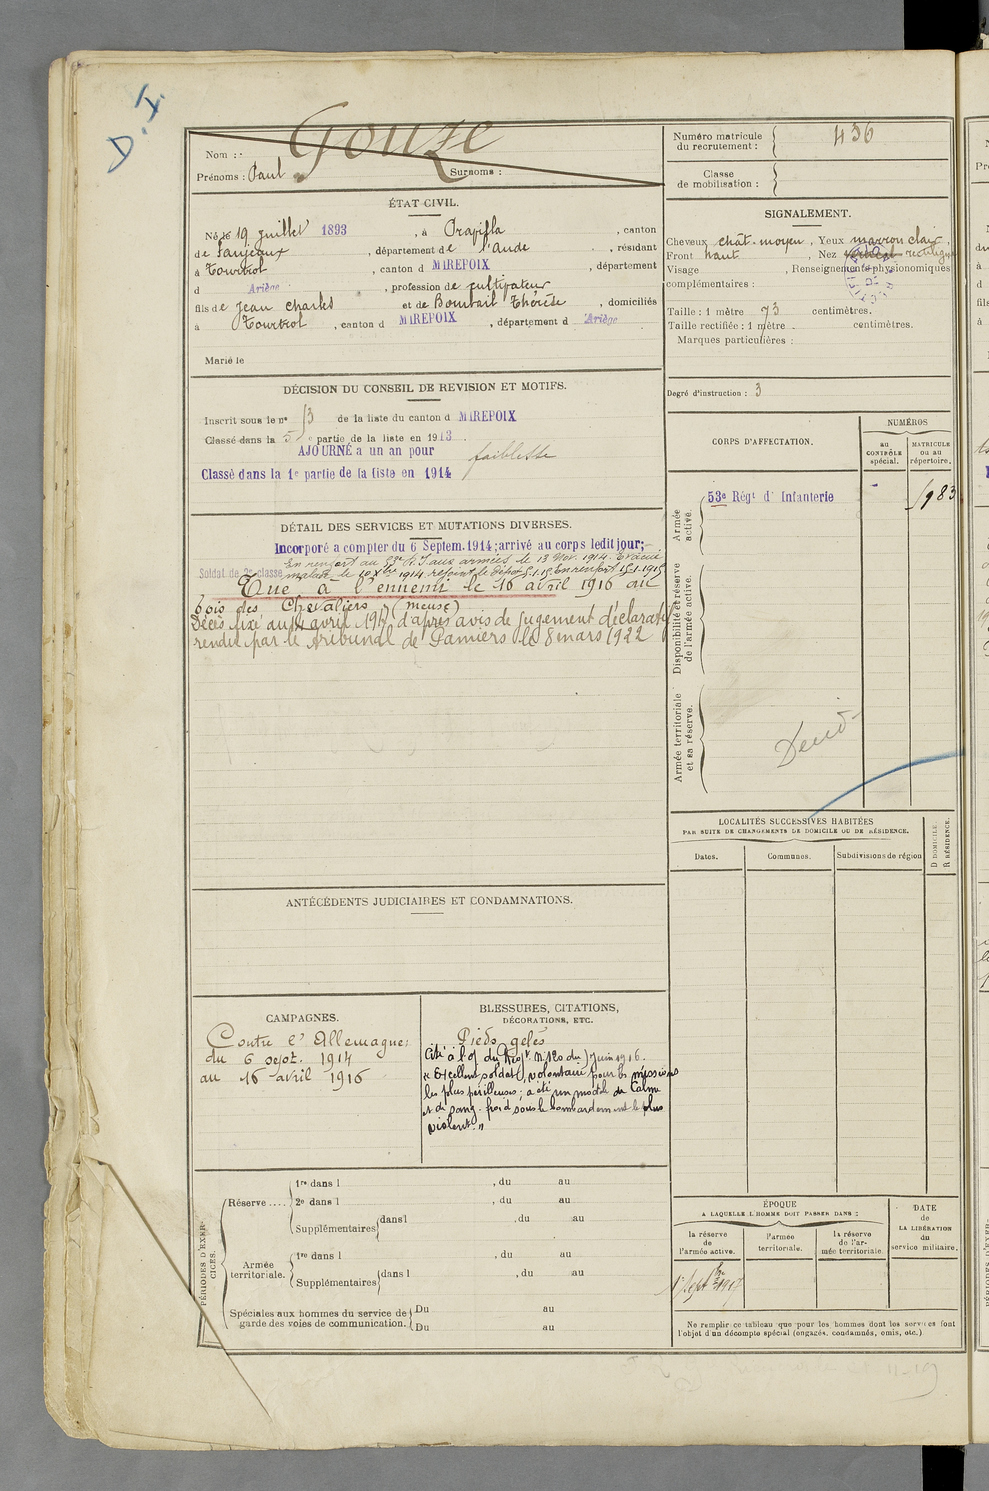 D.I.
Nom : Gouze
Prénoms : Paul Surnoms :
Numéro matricule du recrutement : 436
Classe de mobilisation :
ÉTAT CIVIL.
Né le 19 juillet 1893, à Orafilla, canton
de Fanjeaux, département de l'Aude, résidant
à Tourtrol, canton d MIREPOIX, département
d Ariège, profession de cultivateur
fils de Jean Charles et de Bombail Thérèse, domiciliés
à Tourtrol, canton d MIREPOIX, département d Ariège
Marié le
SIGNALEMENT.
Cheveux chât. moyen, Yeux marron clair,
Front haut, Nez vertical rectiligne
Visage , Renseignements physionomiques
complémentaires :
Taille : 1 mètre 73 centimètres.
Taille rectifiée : 1 mètre centimètres.
Marques particulières :
Degré d'instruction : 3
DÉCISION DU CONSEIL DE REVISION ET MOTIFS.
Inscrit sous le n° 13 de la liste du canton d MIREPOIX
Classé dans la 5e partie de la liste en 1913
AJOURNÉ a un an pour faiblesse
Classé dans la 1e partie de la liste en 1914
DÉTAIL DES SERVICES ET MUTATIONS DIVERSES.
Incorporé a compter du 6 Septem. 1914; arrivé au corps ledit jour;
Soldat de 2e classe
En renfort au 53e R.I aux armées le 13 Nov. 1914. Evacué
malade le 10 Xbre 1914 rejoint le dépôt 5.1.15 En renfort 15.1.1915
Tué à l'ennemi le 16 avril 1916 au
bois des Chevaliers (Meuse)
Décès fixé au 14 avril 1916 d'après avis de Jugement déclaratif
rendu par le tribunal de Pamiers le 8 mars 1922
CORPS D'AFFECTATION.
NUMÉROS
au CONTRÔLE spécial.
MATRICULE ou au répertoire.
Armée active.
53e Régt d' Infanterie
1983
Disponibilité et réserve de l'armée active.
Armée territoriale et sa réserve.
LOCALITÉS SUCCESSIVES HABITÉES
PAR SUITE DE CHANGEMENTS DE DOMICILE OU DE RÉSIDENCE.
Dates.
Communes.
Subdivisions de région
D DOMICILE.
R RÉSIDENCE.
ANTÉCÉDENTS JUDICIAIRES ET CONDAMNATIONS.
CAMPAGNES.
Contre l'Allemagne:
du 6 sept. 1914
au 16 avril 1916
BLESSURES, CITATIONS,
DÉCORATIONS, ETC.
Pieds gelés
Cité à l'O/ du Régt N° 120 du 7 Juin 1916.
"Excellent soldat, volontaire pour les missions
les plus périlleuses; a été un modèle de Calme
et de sang-froid sous le bombardement le plus
violent."
PÉRIODES D'EXERCICES.
Réserve ....
1re dans l , du au
2e dans l , du au
Supplémentaires dans l , du au
Armée territoriale.
1re dans l , du au
Supplémentaires dans l , du au
Spéciales aux hommes du service de garde des voies de communication.
Du au
Du au
ÉPOQUE
A LAQUELLE L'HOMME DOIT PASSER DANS :
la réserve de l'armée active.
l'armée territoriale.
la réserve de l'armée territoriale.
DATE de LA LIBÉRATION du service militaire.
Ne remplir ce tableau que pour les hommes dont les services font
l'objet d'un décompte spécial (engagés, condamnés, omis, etc.)